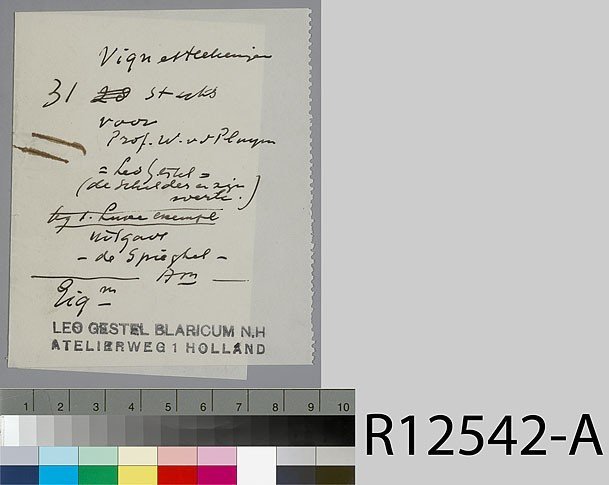 Vignetteekeningen
31 20 stuks
voor
Prof. W. v d Pluym
= Leo Gestel =
(de schilder en zijn
werk.)
Luxe exempl
uitgave
- de Spieghel -
Am
Eig m
LEO GESTEL BLARICUM N.H
ATELIERWEG 1 HOLLAND
1 2 3 4 5 6 7 8 9 10
R12542-A